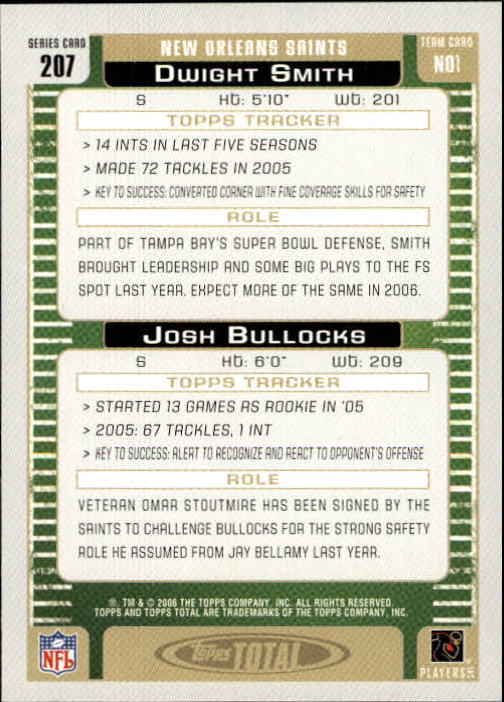 SERIES CARD
207
NEW ORLEANS SAINTS
TEAM CARD
NO1
DWIGHT SMITH
S Ht: 5'10" Wt: 201
TOPPS TRACKER
> 14 INTS IN LAST FIVE SEASONS
> MADE 72 TACKLES IN 2005
> KEY TO SUCCESS: CONVERTED CORNER WITH FINE COVERAGE SKILLS FOR SAFETY
ROLE
PART OF TAMPA BAY'S SUPER BOWL DEFENSE, SMITH
BROUGHT LEADERSHIP AND SOME BIG PLAYS TO THE FS
SPOT LAST YEAR. EXPECT MORE OF THE SAME IN 2006.
JOSH BULLOCKS
S Ht: 6'0" Wt: 209
TOPPS TRACKER
> STARTED 13 GAMES AS ROOKIE IN '05
> 2005: 67 TACKLES, 1 INT
> KEY TO SUCCESS: ALERT TO RECOGNIZE AND REACT TO OPPONENT'S OFFENSE
ROLE
VETERAN OMAR STOUTMIRE HAS BEEN SIGNED BY THE
SAINTS TO CHALLENGE BULLOCKS FOR THE STRONG SAFETY
ROLE HE ASSUMED FROM JAY BELLAMY LAST YEAR.
®, TM & © 2006 THE TOPPS COMPANY, INC. ALL RIGHTS RESERVED.
TOPPS AND TOPPS TOTAL ARE TRADEMARKS OF THE TOPPS COMPANY, INC.
NFL
Topps TOTAL
PLAYERS INC